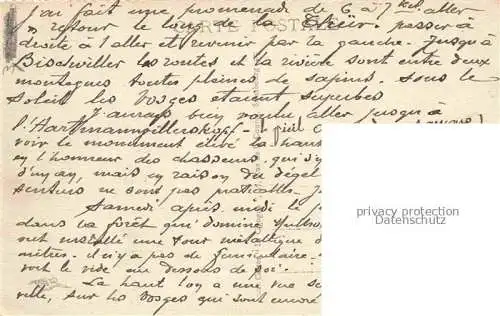 j'ai fait une promenade de 6 à 7 kil. aller
CARTE POSTALE
et retour le long de la passer à
droite à l'aller et revenir par la gauche. Jusqu'à
Bischwiller les routes et la rivière sont entre deux
montagnes toutes pleines de sapins. Sous le
soleil les Vosges étaient superbes
J'aurais bien voulu aller jusqu'à
l'Hartmannswillerskopf -
voir le monument élevé là haut
en l'honneur des chasseurs qui s'y
mais en raison du dégel
sentiers ne sont pas praticables.
Samedi après midi le
dans la forêt qui domine
ont installé une tour métallique d
mètres. il n'y a pas de funiculaire.
voit le vide au dessous de soi.
La haut l'on a une vue
ville, sur les Vosges qui sont encore
privacy protection
Datenschutz